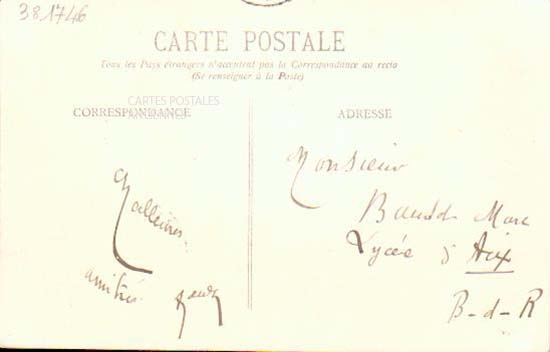 381746
CARTE POSTALE
Tous les Pays étrangers n'acceptent pas la Correspondance au recto
(Se renseigner à la Poste)
CORRESPONDANCE
CARTES POSTALES
ANCIENNES
Meilleures
amitiés
ADRESSE
Monsieur
Marc
Lycée d'Aix
B-d-R